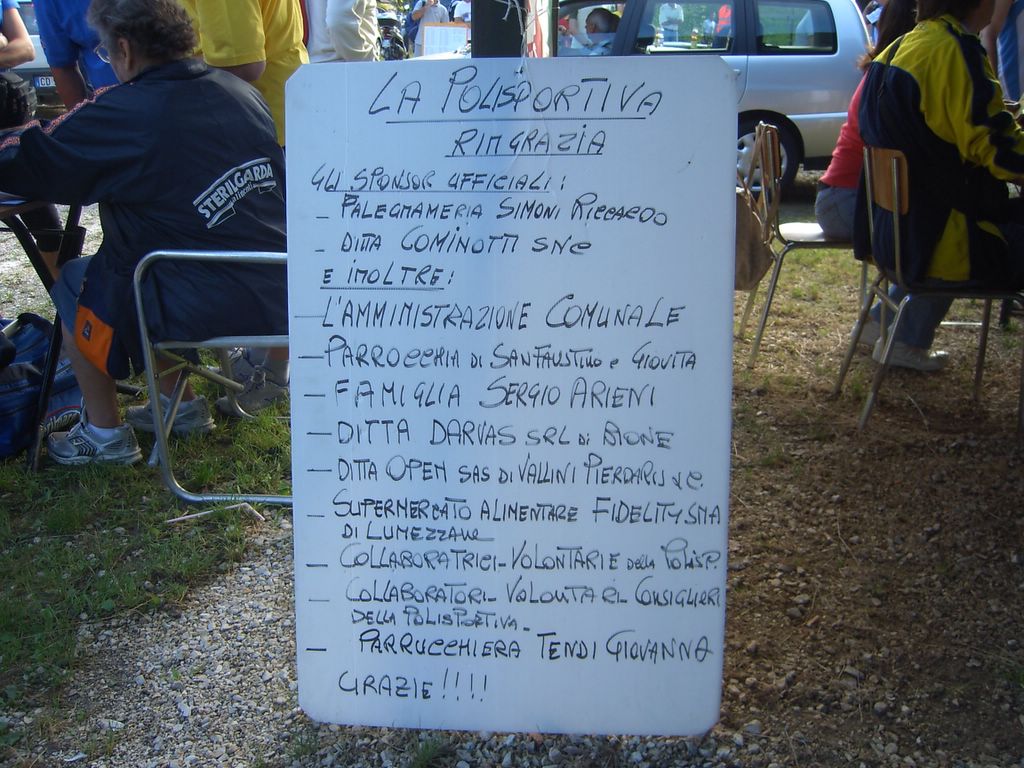 LA POLISPORTIVA
RINGRAZIA
GLI SPONSOR UFFICIALI:
- FALEGNAMERIA SIMONI RICCARDO
- DITTA COMINOTTI SNC
E INOLTRE:
- L'AMMINISTRAZIONE COMUNALE
- PARROCCHIA DI SAN FAUSTINO e GIOVITA
- FAMIGLIA SERGIO ARIENI
- DITTA DARVAS SRL di BIONE
- DITTA OPEN SAS DI VALLINI PIERDARIS & C.
- SUPERMERCATO ALIMENTARE FIDELITY SMA
DI LUMEZZANE
- COLLABORATRICI-VOLONTARIE della POLISP.
- COLLABORATORI-VOLONTARI-CONSIGLIERI
DELLA POLISPORTIVA.
- PARRUCCHIERA TENDI GIOVANNA
GRAZIE!!!!
STERILGARDA